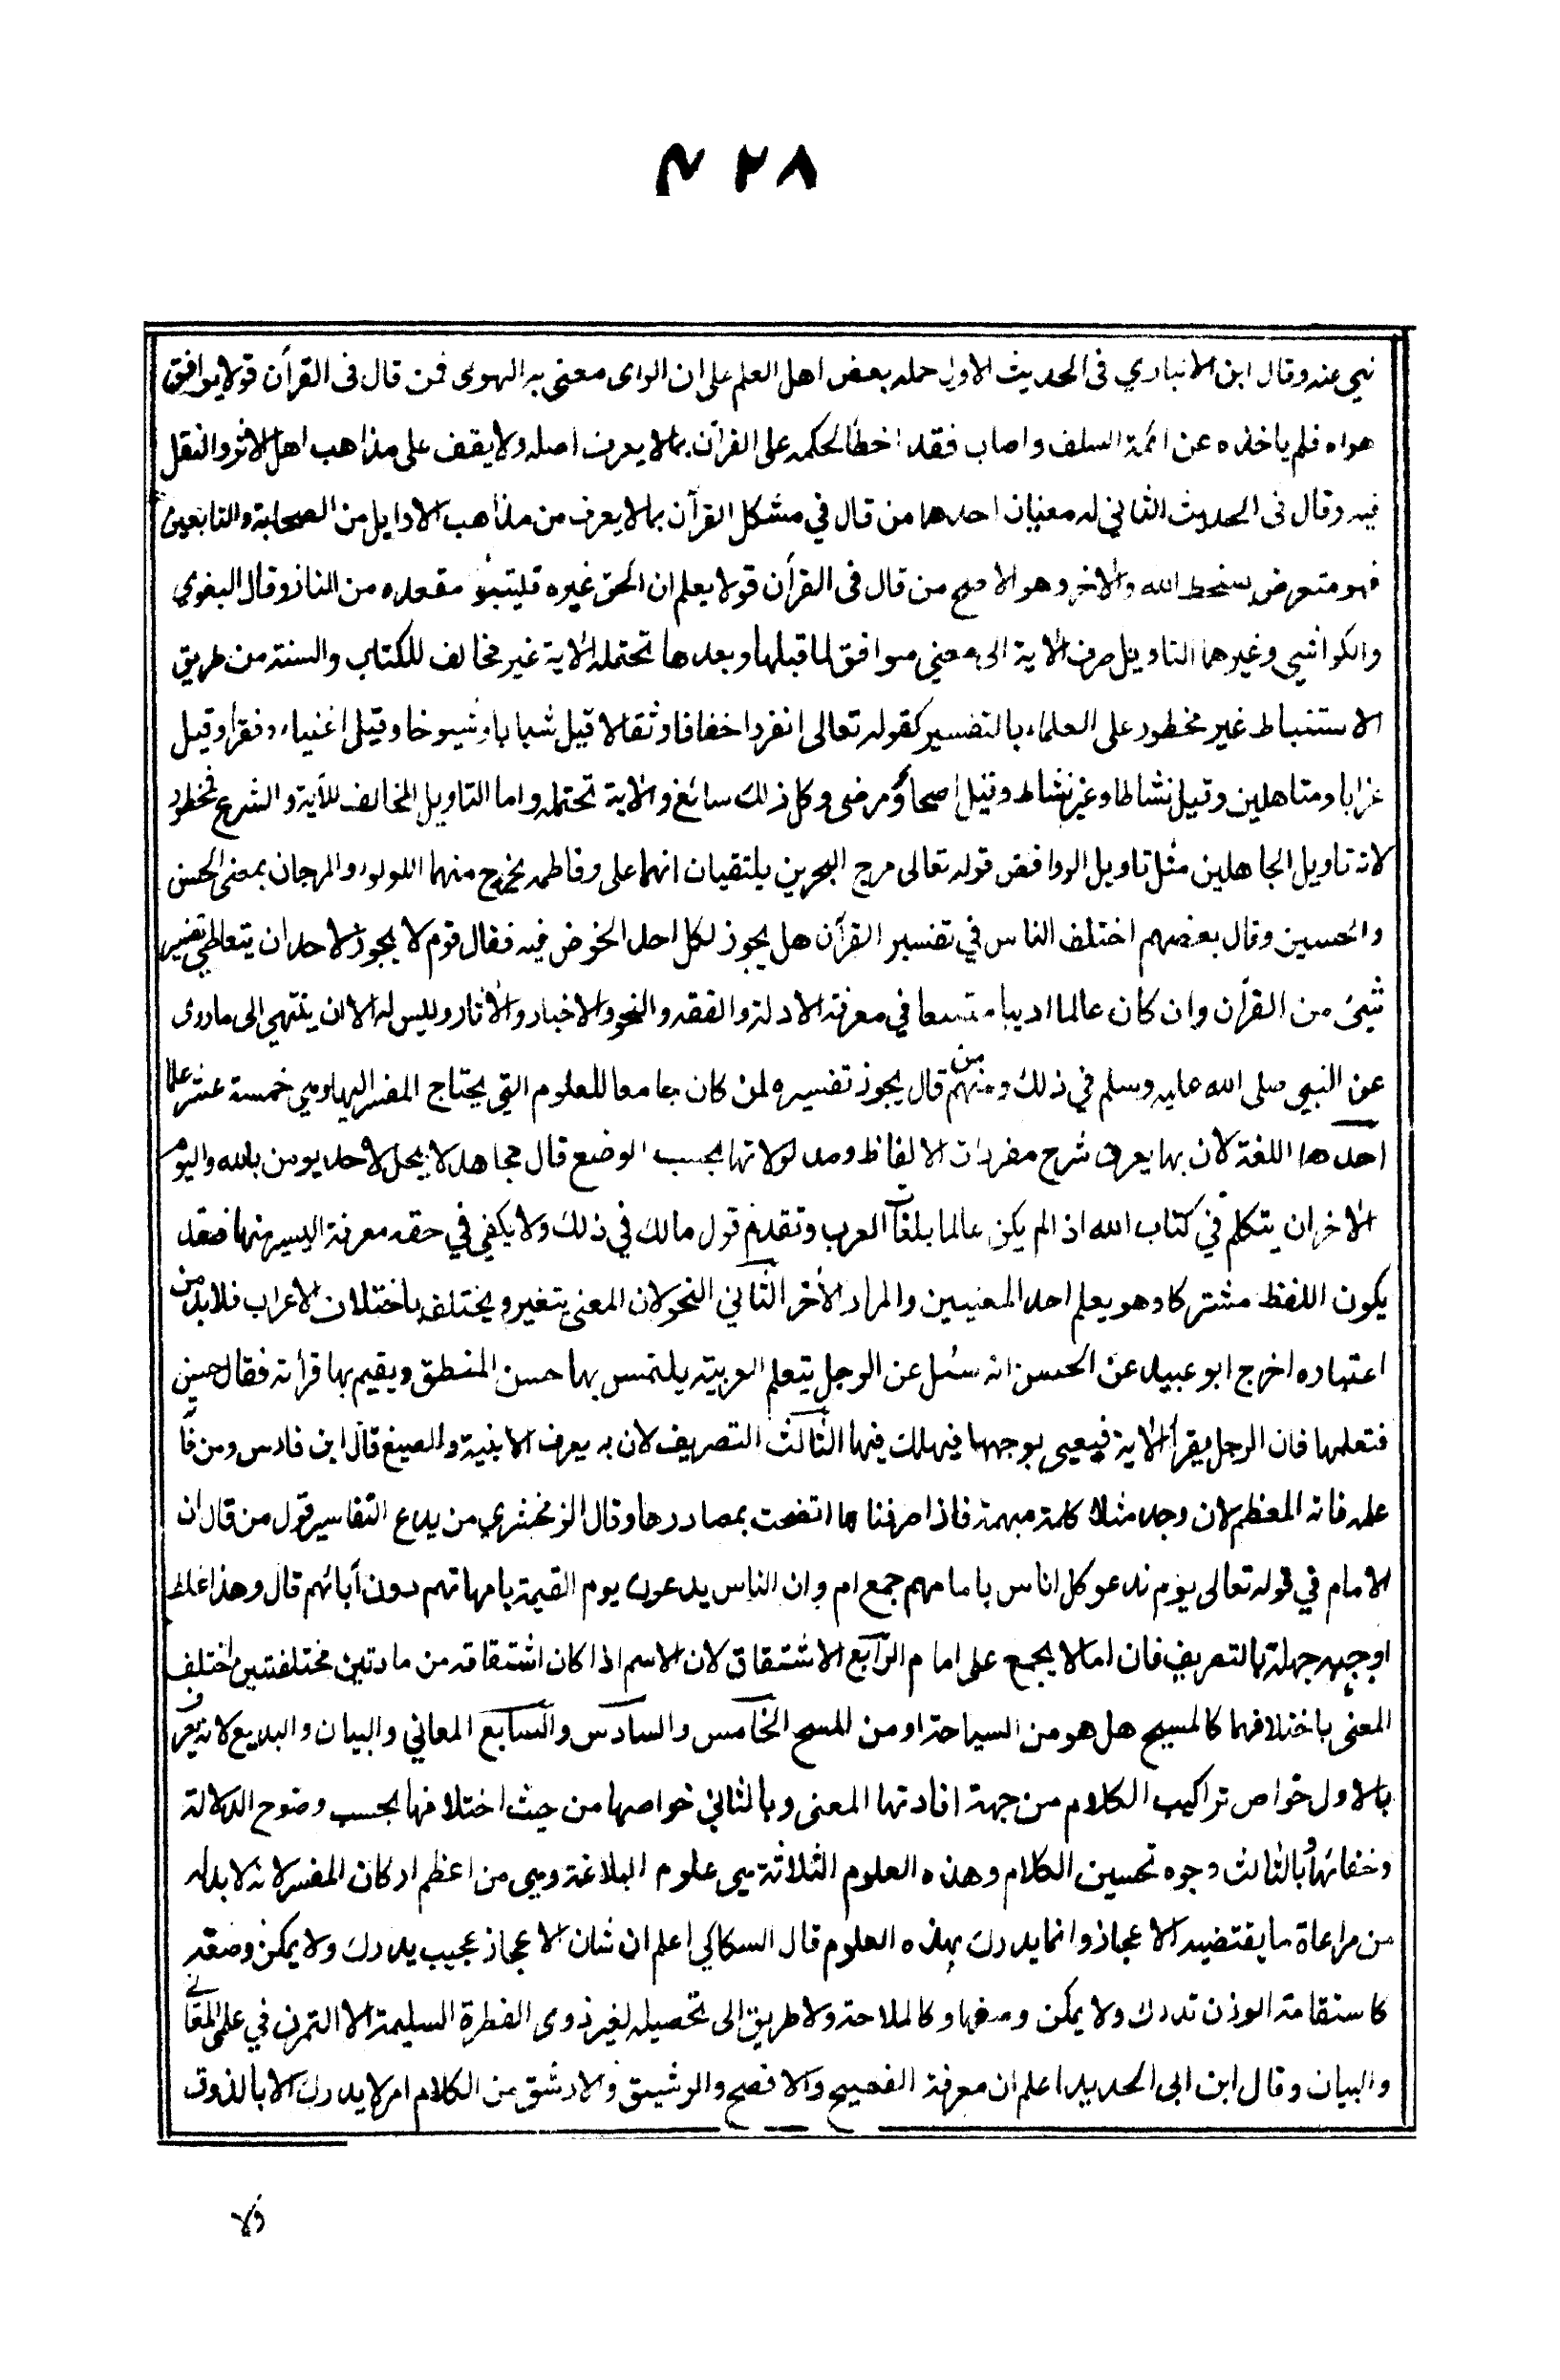 ٤٢٨
نهى عنه وقال ابن الانباري فى الحديث الاول حمله بعض اهل العلم على ان الراى معنى به الهوى فمن قال فى القرآن قولا يوافق
هواه فلم ياخذه عن ائمة السلف واصاب فقد اخطأ لحكمه على القرآن بما لا يعرف اصله ولا يقف على مذاهب اهل الاثر والنقل
فيه وقال فى الحديث الثاني له معنيان احدهما من قال في مشكل القرآن بما لا يعرف من مذاهب الاوايل من الصحابة والتابعين
فهو متعرض لسخط الله والاخر وهو الاصح من قال فى القرآن قولا يعلم ان الحق غيره فليتبوأ مقعده من النار وقال البغوي
والكواشي وغيرهما التاويل صرف الاية الى معنى موافق لما قبلها وبعدها تحتمله الاية غير مخالف للكتاب والسنة من طريق
الاستنباط غير محظور على العلماء بالتفسير كقوله تعالى انفروا خفافا وثقالا قيل شبابا وشيوخا وقيل اغنياء وفقرأ وقيل
عزابا ومتاهلين وقيل نشاطا وغير نشاط وقيل اصحأ ومرضى وكل ذلك سائغ والاية تحتمله واما التاويل المخالف للآية والشرع فمحظور
لانه تاويل الجاهلين مثل تاويل الروافض قوله تعالى مرج البحرين يلتقيان انهما على وفاطمه يخرج منهما اللولو والمرجان بمعنى الحسن
والحسين وقال بعضهم اختلف الناس في تفسير القرآن هل يجوز لكل احد الخوض فيه فقال قوم لا يجوز لاحد ان يتعاطى تفسير
شيئ من القرآن وان كان عالما اديبا متسعا في معرفة الادلة والفقه والنحو والاخبار والاثار وليس له الا ان ينتهي الى ما روى
عن النبي صلى الله عليه وسلم في ذلك ومنهم من قال يجوز تفسيره لمن كان جامعا للعلوم التي يحتاج المفسر اليها وهي خمسة عشر علما
احدها اللغة لان بها يعرف شرح مفردات الالفاظ ومدلولاتها بحسب الوضع قال مجاهد لا يحل لاحد يومن بالله واليوم
الاخر ان يتكلم في كتاب الله اذا لم يكن عالما بلغات العرب وتقدم قول مالك في ذلك ولا يكفي في حقه معرفة اليسير منها فقد
يكون اللفظ مشتركا وهو يعلم احد المعنيين والمراد الآخر الثاني النحو لان المعنى يتغير ويختلف باختلاف الاعراب فلا بد من
اعتباره اخرج ابو عبيد عن الحسن انه سئل عن الرجل يتعلم العربية يلتمس بها حسن المنطق ويقيم بها قرأته فقال حسن
فتعلمها فان الرجل يقرأ الاية فيعيى بوجهها فيهلك فيها الثالث التصريف لان به يعرف الابنية والصيغ قال ابن فارس ومن فا
علمه فاته المعظم لان وجد مثلا كلمة مبهمة فاذا صرفنا ها اتضحت بمصادرها وقال الزمخشري من يدع التفاسير قول من قال ان
الامام في قوله تعالى يوم ندعو كل اناس بامامهم جمع ام وان الناس يدعون يوم القيمة بامهاتهم دون آبائهم قال وهذا غلط
اوجبه جهله بالتصريف فان اما لا يجمع على امام الرابع الاشتقاق لان الاسم اذا كان اشتقاقه من مادتين مختلفتين اختلف
المعنى باختلافهما كالمسيح هل هو من السياحة او من المسح الخامس والسادس والسابع المعاني والبيان والبديع لانه يعرف
بالاول خواص تراكيب الكلام من جهة افادتها المعنى وبالثاني خواصها من حيث اختلافها بحسب وضوح الدلالة
وخفائها وبالثالث وجوه تحسين الكلام وهذه العلوم الثلاثة هي علوم البلاغة وهي من اعظم اركان المفسر لانه لا بد له
من مراعاة ما يقتضيه الاعجاز وانما يدرك بهذه العلوم قال السكاكي اعلم ان شان الاعجاز عجيب يدرك ولا يمكن وصفه
كاستقامة الوزن تدرك ولا يمكن وصفها وكالملاحة ولا طريق الى تحصيله لغير ذوى الفطرة السليمة الا التمرن في علمى المعاني
والبيان وقال ابن ابى الحديد اعلم ان معرفة الفصيح والافصح والرشيق والارشق من الكلام امر لا يدرك الا بالذوق
ولا